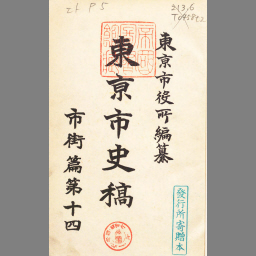 東京市役所編纂
東京市史稿
市街篇第十四
發行所寄贈本
213.6